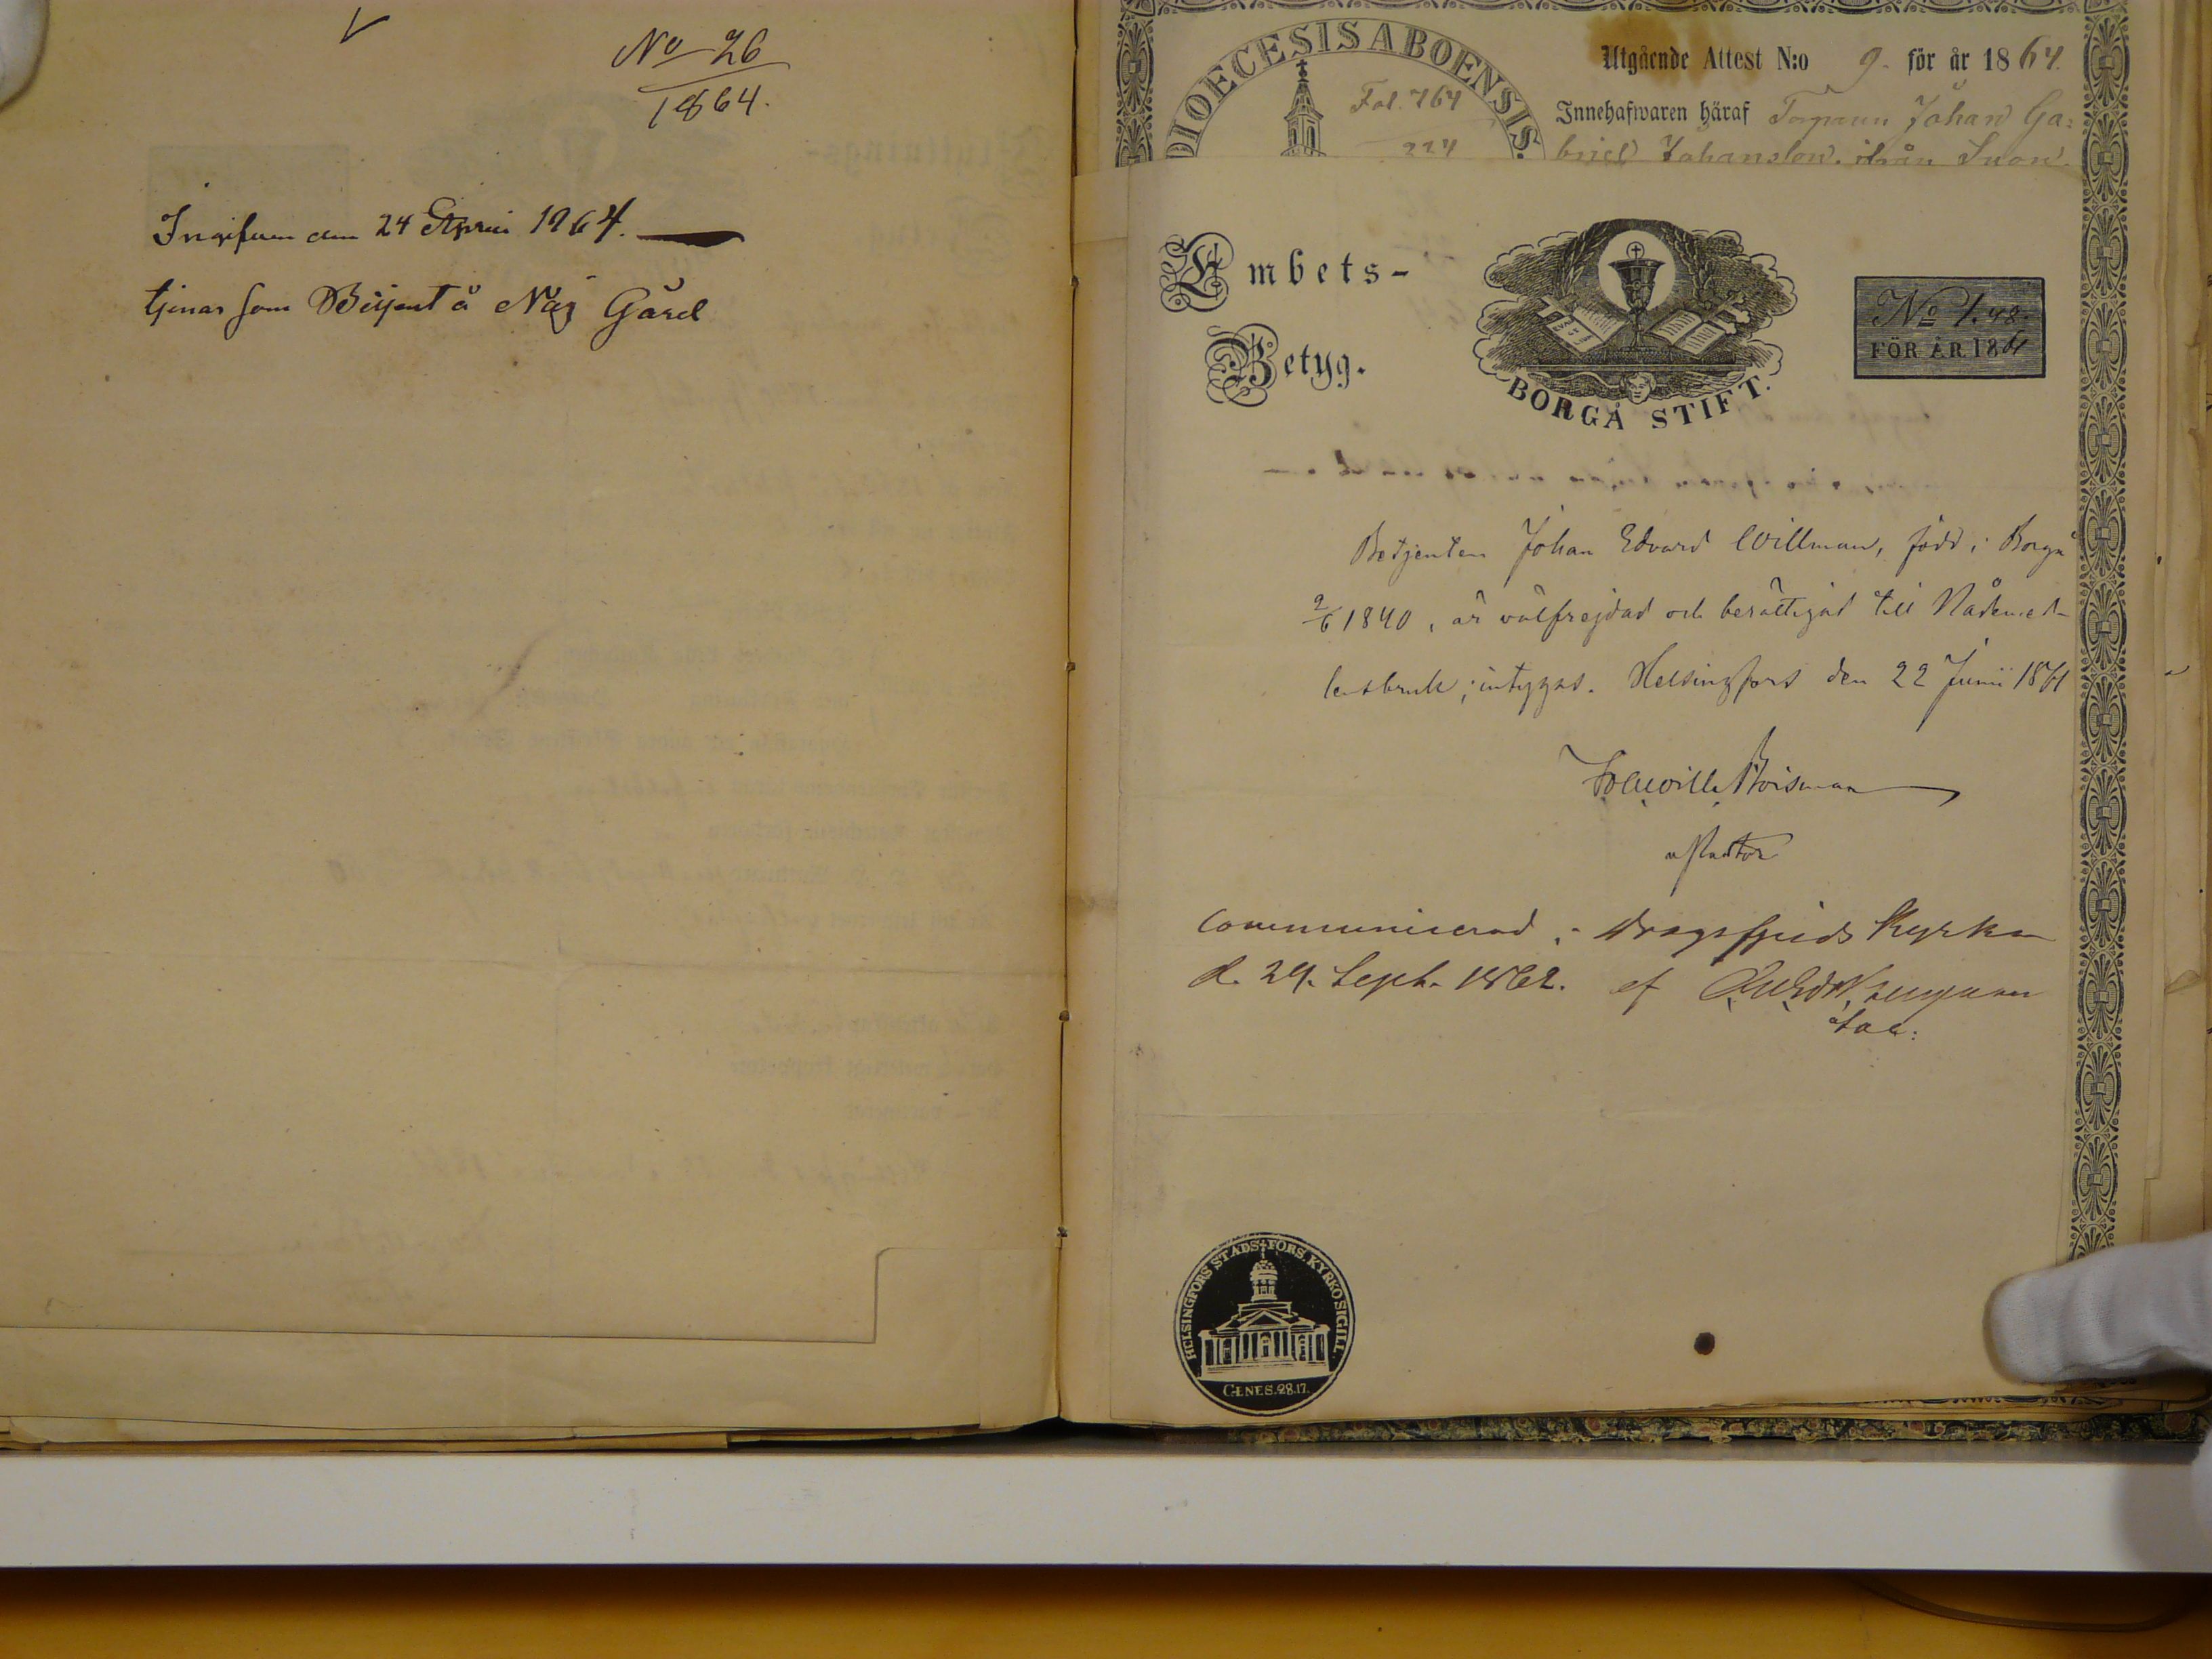 No 26
1864.
den 24 April 1864.
tjenar som Betjent å Näs Gård
DIOECESIS ABOENSIS.
Fol. 764
224
Utgående Attest N:o 9. för år 1864.
Innehafwaren häraf Torparen Johan Ga-
briel Johansson, ifrån
Embets-
Betyg.
BORGÅ STIFT.
No 1.48.
FÖR ÅR 1861
Betjenten Johan Edvard Willman, född i Borgå
2/6 1840, är välfrejdad och berättigad till Nådemed-
lens bruk; intygas. Helsingfors den 22 Junii 1861
a Pastor
Communicerad i Dragsfjerds Kyrka
d. 29. Sept. 1862. af
Sac:
HELSINGFORS STADS FÖRS. KYRKO SIGILL.
GENES. 28.17.